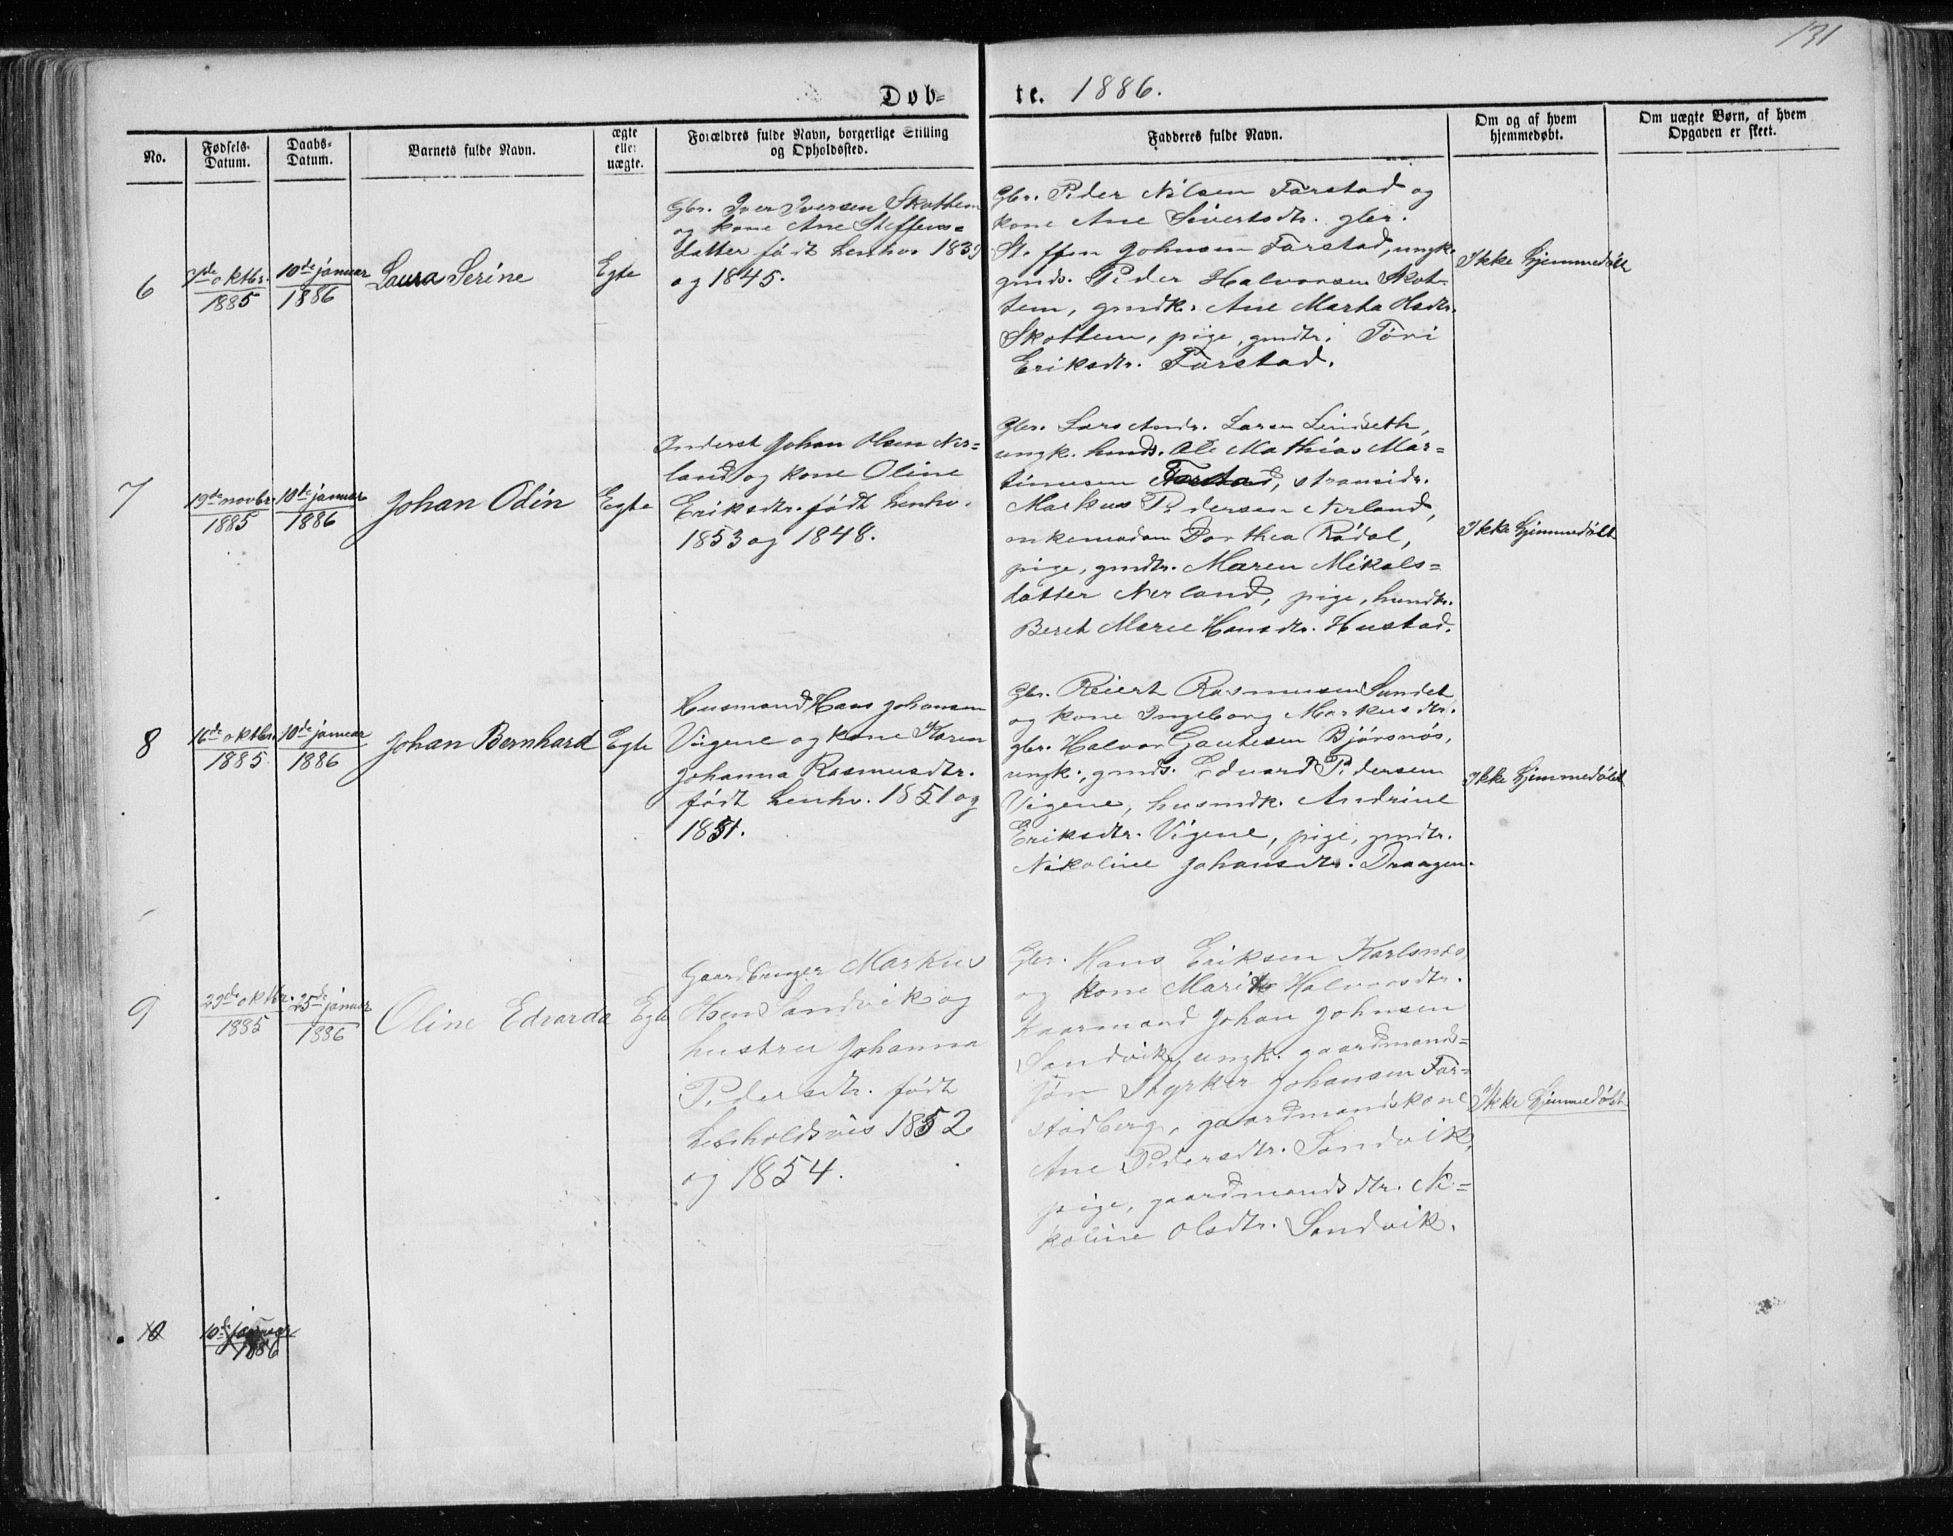 131
Døb-
te. 1886.
No.
Fødsels-
Datum.
Daabs-
Datum.
Barnets fulde Navn.
ægte
eller
uægte.
Forældres fulde Navn, borgerlige Stilling
og Opholdssted.
Fadderes fulde Navn.
Om og af hvem
hjemmedøbt.
Om uægte Børn, af hvem
Opgaven er skeet.
6
7de oktbr.
1885
10de januar
1886
Laura Serine
Egte
Gbr. Iver Iversen Skottem
og kone Ane Steffens-
datter født henhv 1839
og 1845.
Gbr. Peder Nilsen Farstad og
kone Ane Sivertsdtr. gbr.
Steffen Johnsen Farstad, ungk.
gmds. Peder Halvorsen Skot-
tem, gmdk. Ane Marta Hsdtr.
Skottem, pige, gmdtr. Töri
Eriksdtr. Farstad.
Ikke hjemmedøbt
7
19de novbr.
1885
10de januar
1886
Johan Odin
Egte
Inderst Johan Olsen Ner-
land og kone Oline
Eriksdtr. født henhv.
1853 og 1848.
Gbr. Lars Andr. Larsen Lindseth,
ungk. hmds. Ole Mathias Mar-
tinusen Farstad, strandsidr.
Markus Pedersen Nerland,
enkemadam Dorthea Rødal,
pige, gmdtr. Maren Mikals-
datter Nerland, pige, hmdtr.
Beret Marie Hansdtr. Hustad.
Ikke hjemmedøbt
8
16de oktbr.
1885
10de januar
1886
Johan Bernhard
Egte
Husmand Hans Johansen
Vigene og kone Karen
Johanna Rasmusdtr.
født henhv. 1851 og
1851.
Gbr. Reiert Rasmusen Sundet
og kone Ingeborg Markusdtr.
gbr. Halvor Gautesen Bjørsnøs,
ungk., gmds. Edvard Pedersen
Vigene, husmdk. Andrine
Eriksdtr. Vigene, pige, gmdtr.
Nikoline Johansdtr. Draagen.
Ikke hjemmedøbt
9
29de oktbr.
1885
25de januar
1886
Oline Edvarda
Egte
Gaardbruger Markus
Hsen Sandvik og
hustru Johanna
Pedersdtr. født
henholdsvis 1852
og 1854.
Gbr. Hans Eriksen Karlsnøs
og kone Marit Halvorsdtr.
kaarmand Johan Johnsen
Sandvik, ungk. gaardmands-
søn Styrker Johansen Far-
stadberg, gaardmandskone
Ane Pedersdtr. Sandvik,
pige, gaardmandsdtr. Ni-
koline Olsdtr. Sandvik.
Ikke hjemmedøbt
10
10de januar
1886